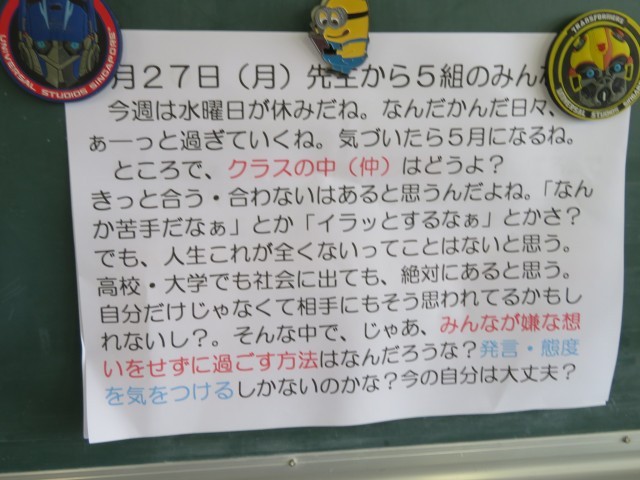 TRANSFORMERS
UNIVERSAL STUDIOS SINGAPORE
UNIVERSAL STUDIOS SINGAPORE
月２７日（月）先生から５組のみんな
今週は水曜日が休みだね。なんだかんだ日々、
ぁーっと過ぎていくね。気づいたら５月になるね。
ところで、クラスの中（仲）はどうよ？
きっと合う・合わないはあると思うんだよね。「なん
か苦手だなぁ」とか「イラッとするなぁ」とかさ？
でも、人生これが全くないってことはないと思う。
高校・大学でも社会に出ても、絶対にあると思う。
自分だけじゃなくて相手にもそう思われてるかもし
れないし？。そんな中で、じゃあ、みんなが嫌な想
いをせずに過ごす方法はなんだろうな？発言・態度
を気をつけるしかないのかな？今の自分は大丈夫？